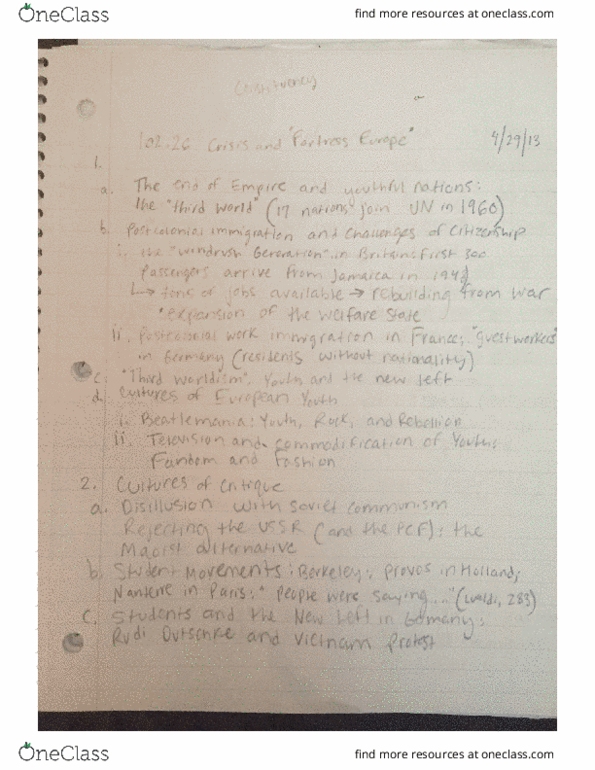 OneClass
find more resources at oneclass.com
Constituency
102.26 Crisis and "Fortress Europe" 4/29/13
1.
a. The end of Empire and youthful nations:
the "third world" (17 nations join UN in 1960)
b. Postcolonial immigration and Challenges of Citizenship
i. the "windrush Generation" in Britain: First 300
Passengers arrive from Jamaica in 1948
↳ tons of jobs available → rebuilding from war
expansion of the welfare State
ii. Postcolonial work immigration in France; "guestworkers"
in Germany (residents without nationality)
c. "Third Worldism": Youth and the new left
d. Cultures of European Youth
i. Beatlemania: Youth, Rock, and Rebellion
ii. Television and commodification of Youth;
Fandom and Fashion
2. Cultures of Critique
a. Disillusion with Soviet Communism
Rejecting the USSR (and the PCF): the
Maoist alternative
b. Student Movements: Berkeley; Provos in Holland;
Nanterre in Paris: "People were saying..." ( 283)
c. Students and the New Left in Germany:
Rudi Dutschke and Vietnam Protest
OneClass
find more resources at oneclass.com